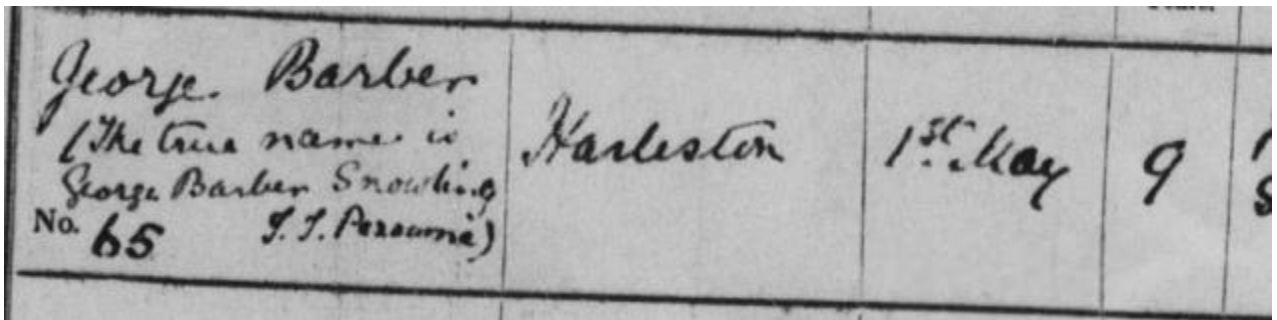 George Barber
(The true name is
George Barber Snowling
No. 65
Harleston
1st. May
9